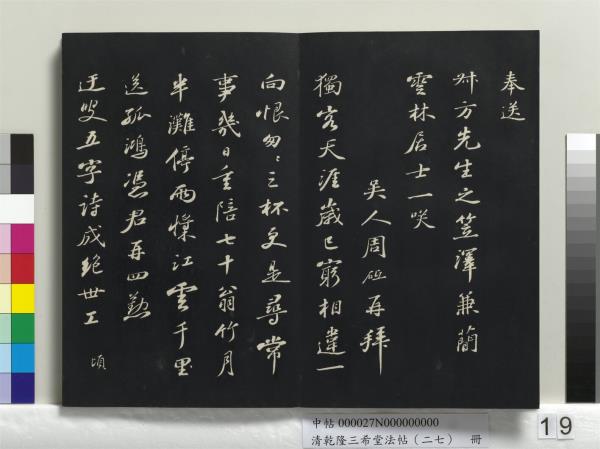 奉送
叔方先生之笠澤兼簡
雲林居士一咲
吳人周砥再拜
獨客天涯歲已窮相違一
向恨匆〻三杯更是尋常
事幾日重陪七十翁竹月
半灘停兩江雲千里
送孤鴻憑君再四懃
迂叟五字詩成絕世工 頃
中帖 000027N000000000
清乾隆三希堂法帖(二七) 冊
19